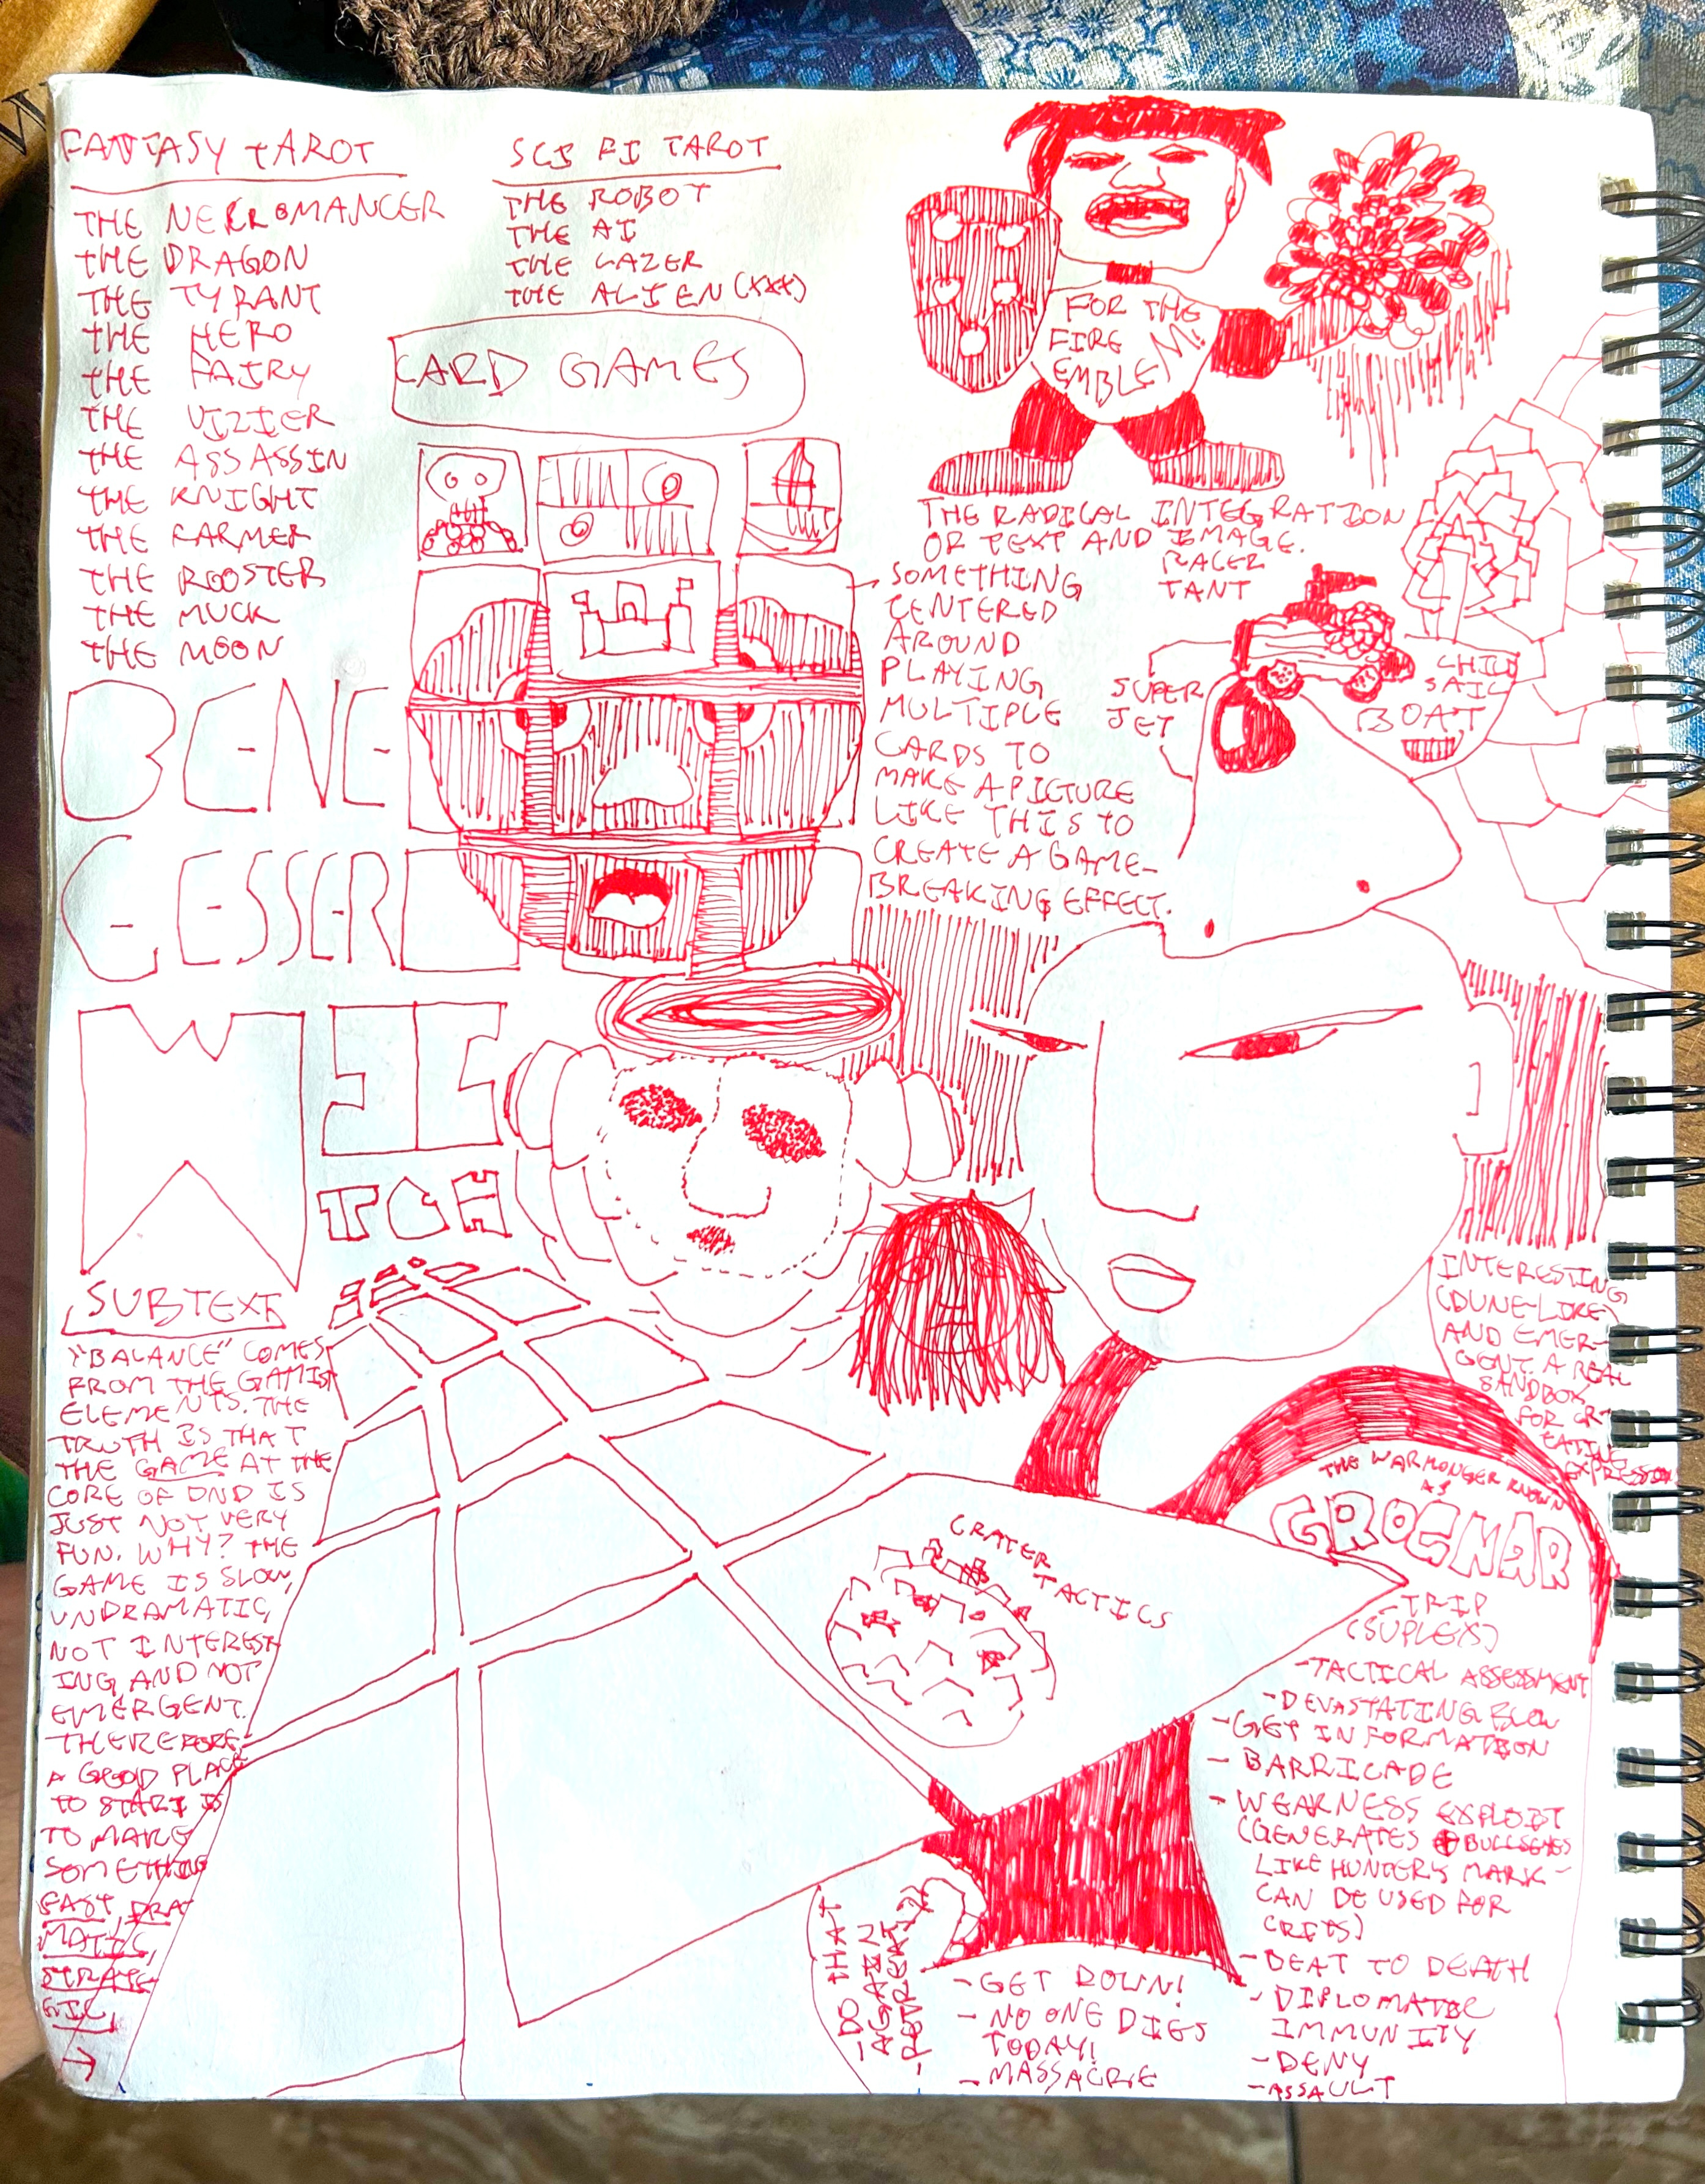 FANTASY TAROT
THE NECROMANCER
THE DRAGON
THE TYRANT
THE HERO
THE FAIRY
THE VIZIER
THE ASSASSIN
THE KNIGHT
THE FARMER
THE ROOSTER
THE MUCK
THE MOON
SCI FI TAROT
THE ROBOT
THE AI
THE LAZER
THE ALIEN (XXX)
CARD GAMES
FOR THE
FIRE
EMBLEM!
THE RADICAL INTEGRATION
OF TEXT AND IMAGE.
SOMETHING
CENTERED
AROUND
PLAYING
MULTIPLE
CARDS TO
MAKE A PICTURE
LIKE THIS TO
CREATE A GAME-
BREAKING EFFECT.
RACER
TANT
SUPER
JET
CHILD
SAIL
BOAT
BENE
GESSERI
WIITCH
SUBTEXT
"BALANCE" COMES
FROM THE GAMIST
ELEMENTS. THE
TRUTH IS THAT
THE GAME AT THE
CORE OF DND IS
JUST NOT VERY
FUN. WHY? THE
GAME IS SLOW,
UNDRAMATIC,
NOT INTEREST-
ING AND NOT
EMERGENT.
THEREFORE,
A GOOD PLACE
TO START IS
TO MAKE
SOMETHING
FAST, DRA
MATIC,
STRATE
GIC,
INTERESTING
(DUNE-LIKE)
AND EMER-
GENT. A REAL
SANDBOX
FOR CR-
EATING
EXPRESSION
CRATER TACTICS
THE WARMONGER KNOWN
AS
GROGNAR
-TRIP
(SUPLEX)
-TACTICAL ASSESSMENT
-DEVASTATING BLOW
-GET IN FORMATION
-BARRICADE
-WEAKNESS EXPLOIT
(GENERATES BULLSEYES
LIKE HUNTER'S MARK-
CAN BE USED FOR
CRITS)
-BEAT TO DEATH
-DIPLOMATIC
IMMUNITY
-DENY
-ASSAULT
-GET DOWN!
-NO ONE DIES
TODAY!
-MASSACRE
-DO THAT
AGAIN
-RETREAT!